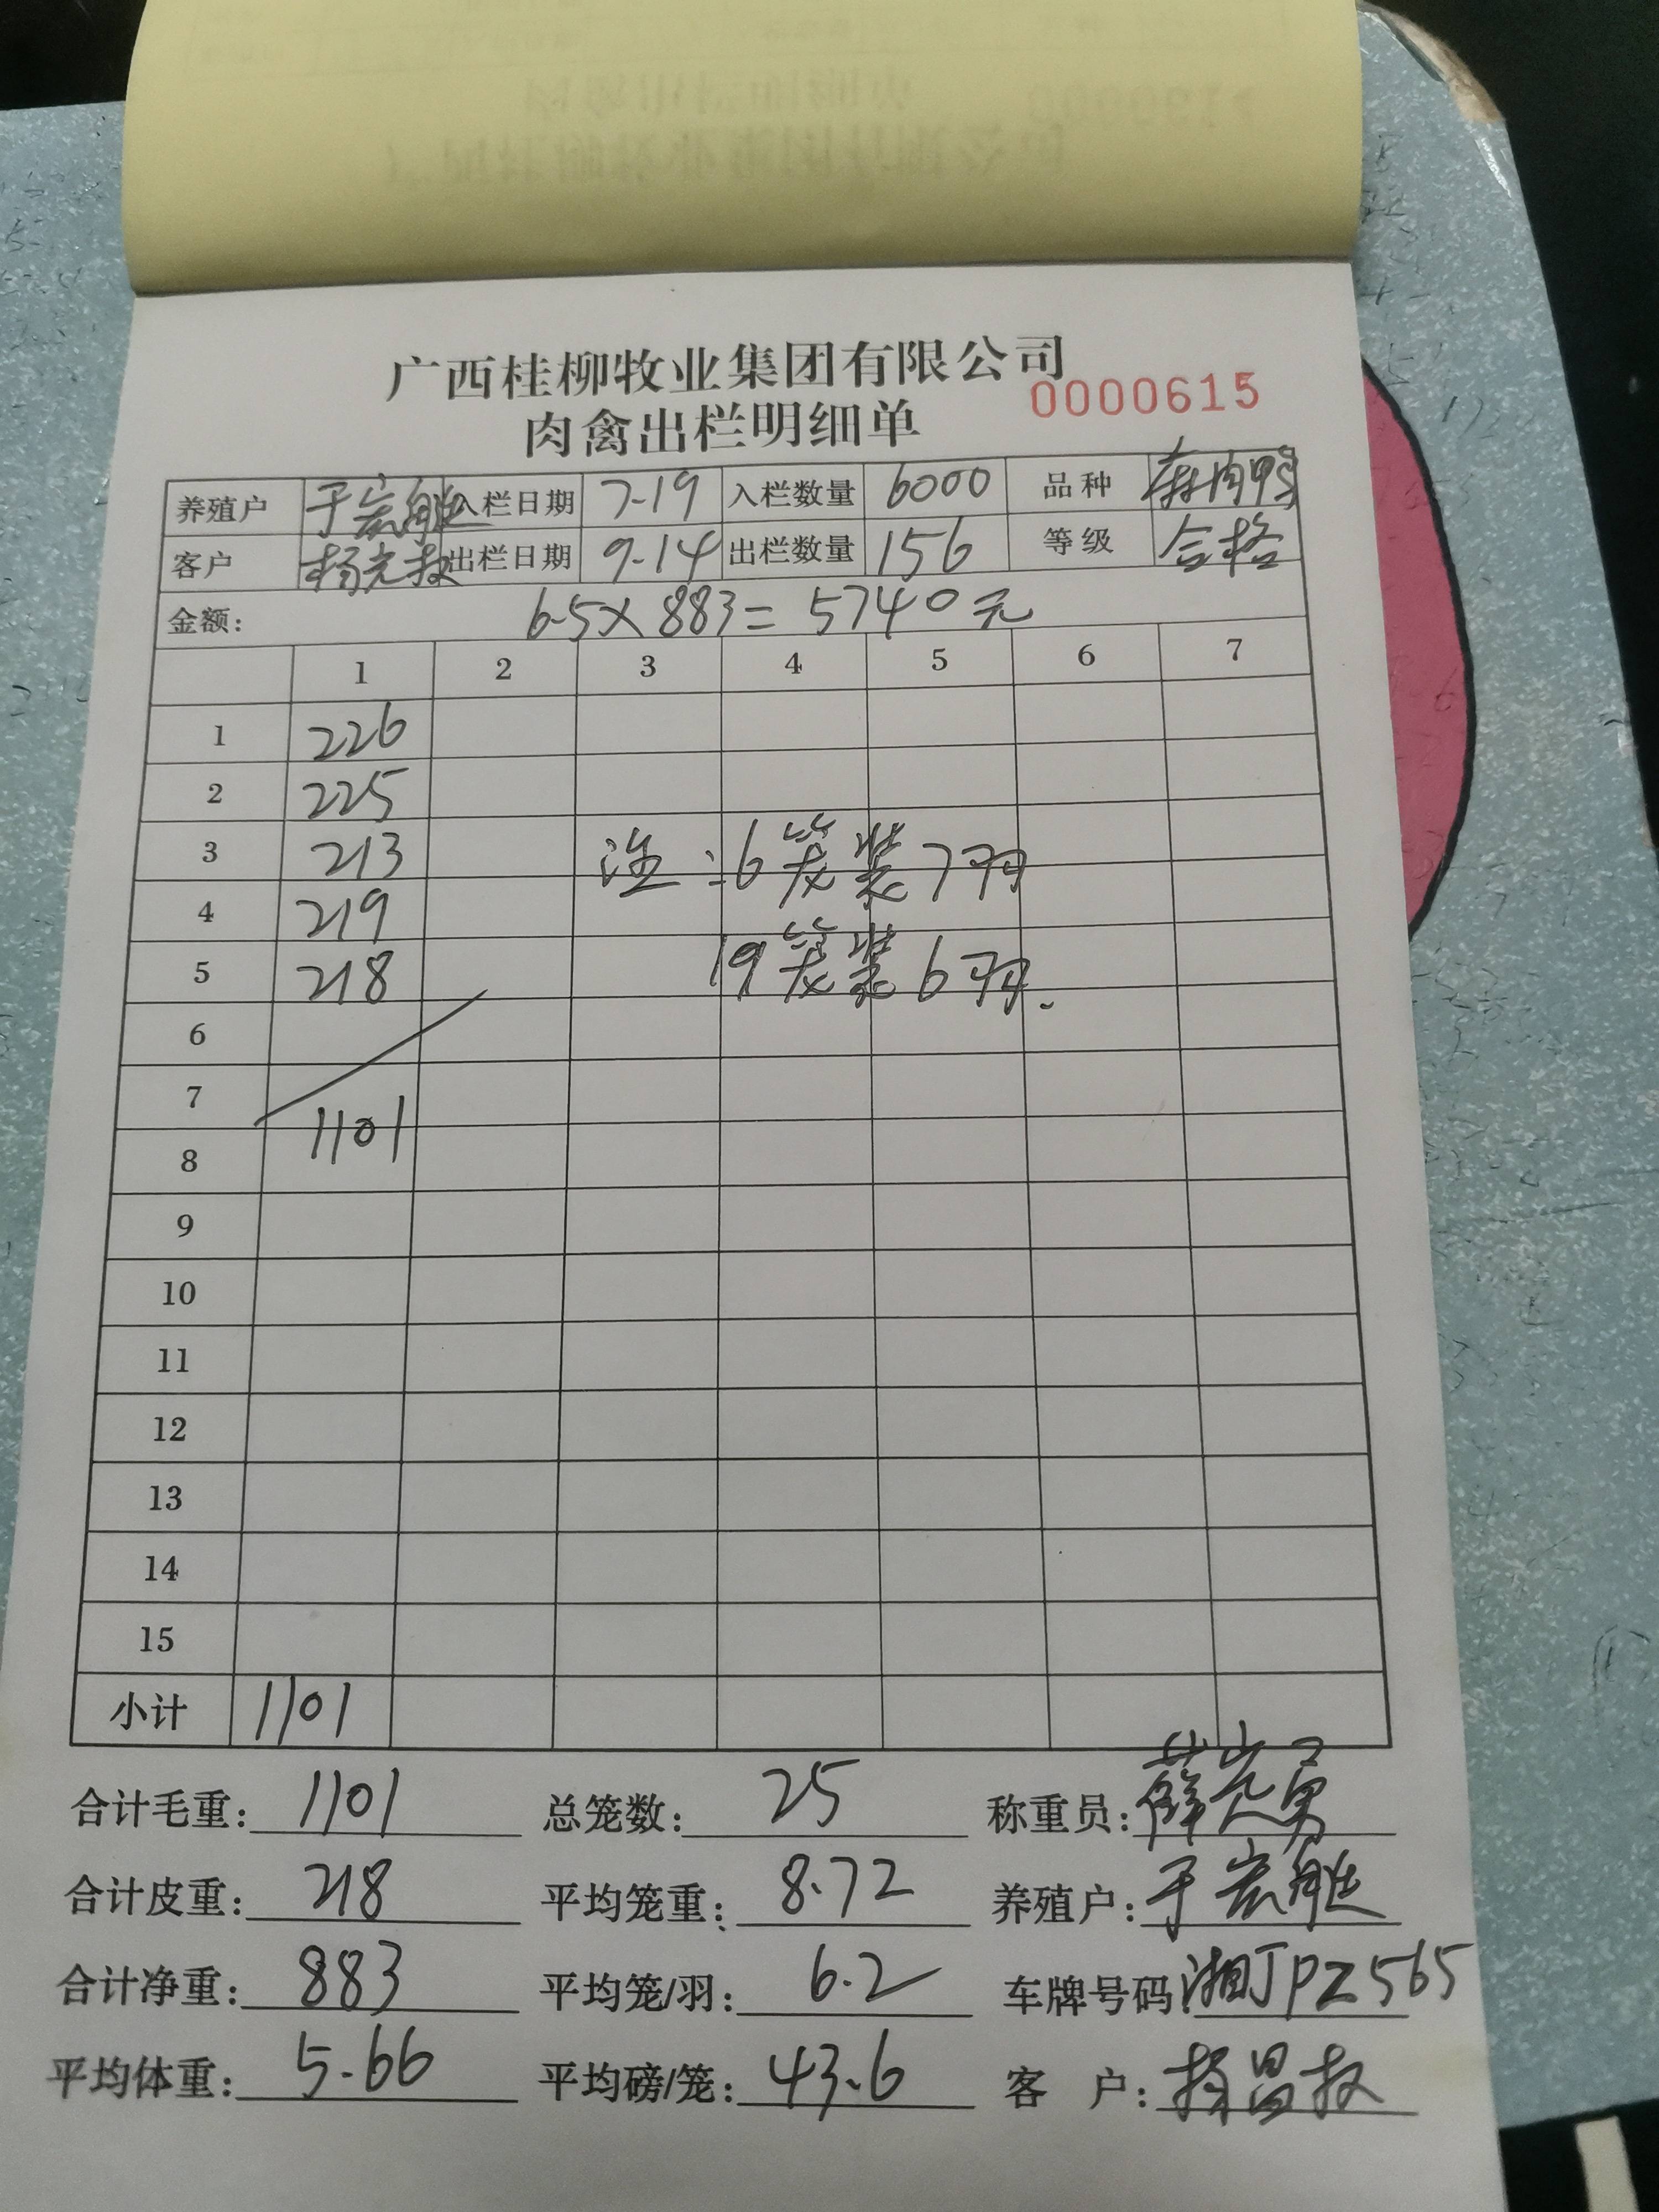 广西桂柳牧业集团有限公司
肉禽出栏明细单 0000615
养殖户 于宏胜 入栏日期 7-19 入栏数量 6000 品种 肉鸭
客户 出栏日期 9-14 出栏数量 156 等级 合格
金额: 6.5×883=5740元
1 2 3 4 5 6 7
1 226
2 225
3 213 注:6笼装7羽
4 219
5 218 19笼装6羽.
6
7
1101
8
9
10
11
12
13
14
15
小计 1101
合计毛重: 1101 总笼数: 25 称重员:
合计皮重: 218 平均笼重: 8.72 养殖户: 于宏胜
合计净重: 883 平均笼/羽: 6.2 车牌号码: 湘JPZ565
平均体重: 5.66 平均磅/笼: 43.6 客 户: